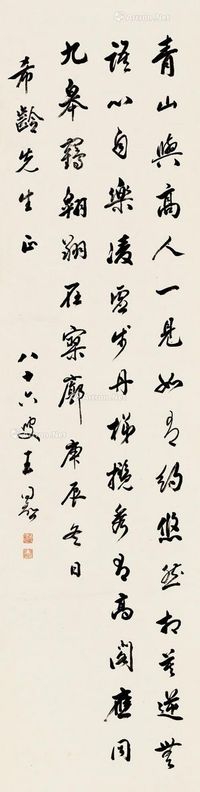 青山與高人一見如有約悠然相莫逆無
語心自樂凌虛步丹梯攬秀有高閣應同
九皋鶴翱翔在寥廓 庚辰冬日
希齡先生正
八十六叟王同愈